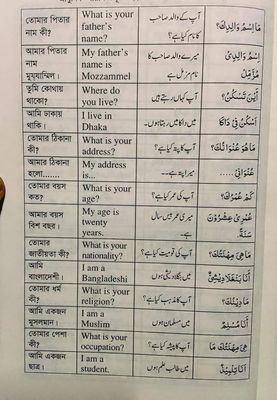 তোমার পিতার
নাম কী?
What is your
father's
name?
آپ کے والد صاحب
کا نام کیا ہے؟
مَا اسْمُ وَالِدِكَ؟
আমার পিতার
নাম
মুয্যাম্মিল।
My father's
name is
Mozzammel
میرے والد صاحب کا
نام مزمل ہے
اِسْمُ وَالِدِىْ
مُزَّمِّلٌ
তুমি কোথায়
থাকো?
Where do
you live?
آپ کہاں رہتے ہیں
أَيْنَ تَسْكُنُ؟
আমি ঢাকায়
থাকি।
I live in
Dhaka
میں ڈاکا میں رہتا ہوں۔
اَسْكُنُ فِىْ دَاكَا
তোমার ঠিকানা
কী?
What is your
address?
آپ کا پتہ کیا ہے؟
مَا هُوَ عُنْوَانُكَ؟
আমার ঠিকানা
হলো.......
My address
is...
میرا پتہ ہے۔۔
عُنْوَانِىْ.....
তোমার বয়স
কত?
What is your
age?
آپ کی عمر کیا ہے؟
كَمْ عُمْرُكَ؟
আমার বয়স
বিশ বছর।
My age is
twenty
years.
میری عمر بیس سال
ہے۔
عُمْرِىْ عِشْرُوْنَ
سَنَةً.
তোমার
জাতীয়তা কী?
What is your
nationality?
آپ کی قومیت کیا ہے؟
مَا هِىَ
আমি
বাংলাদেশী।
I am a
Bangladeshi
میں بنگلا دیشی ہوں
أَنَا بَنْغَلَادِيْشِىٌّ
তোমার ধর্ম
কী?
What is your
religion?
آپ کا مذہب کیا ہے؟
مَا دِيْنُكَ؟
আমি একজন
মুসলমান।
I am a
Muslim
میں مسلمان ہوں
أَنَا مُسْلِمٌ
তোমার পেশা
কী?
What is your
occupation?
آپ کا پیشہ کیا ہے؟
هِىَ مِهْنَتُكَ مَا
আমি একজন
ছাত্র।
I am a
student.
میں طالب علم ہوں
أَنَا تِلْمِيْذٌ